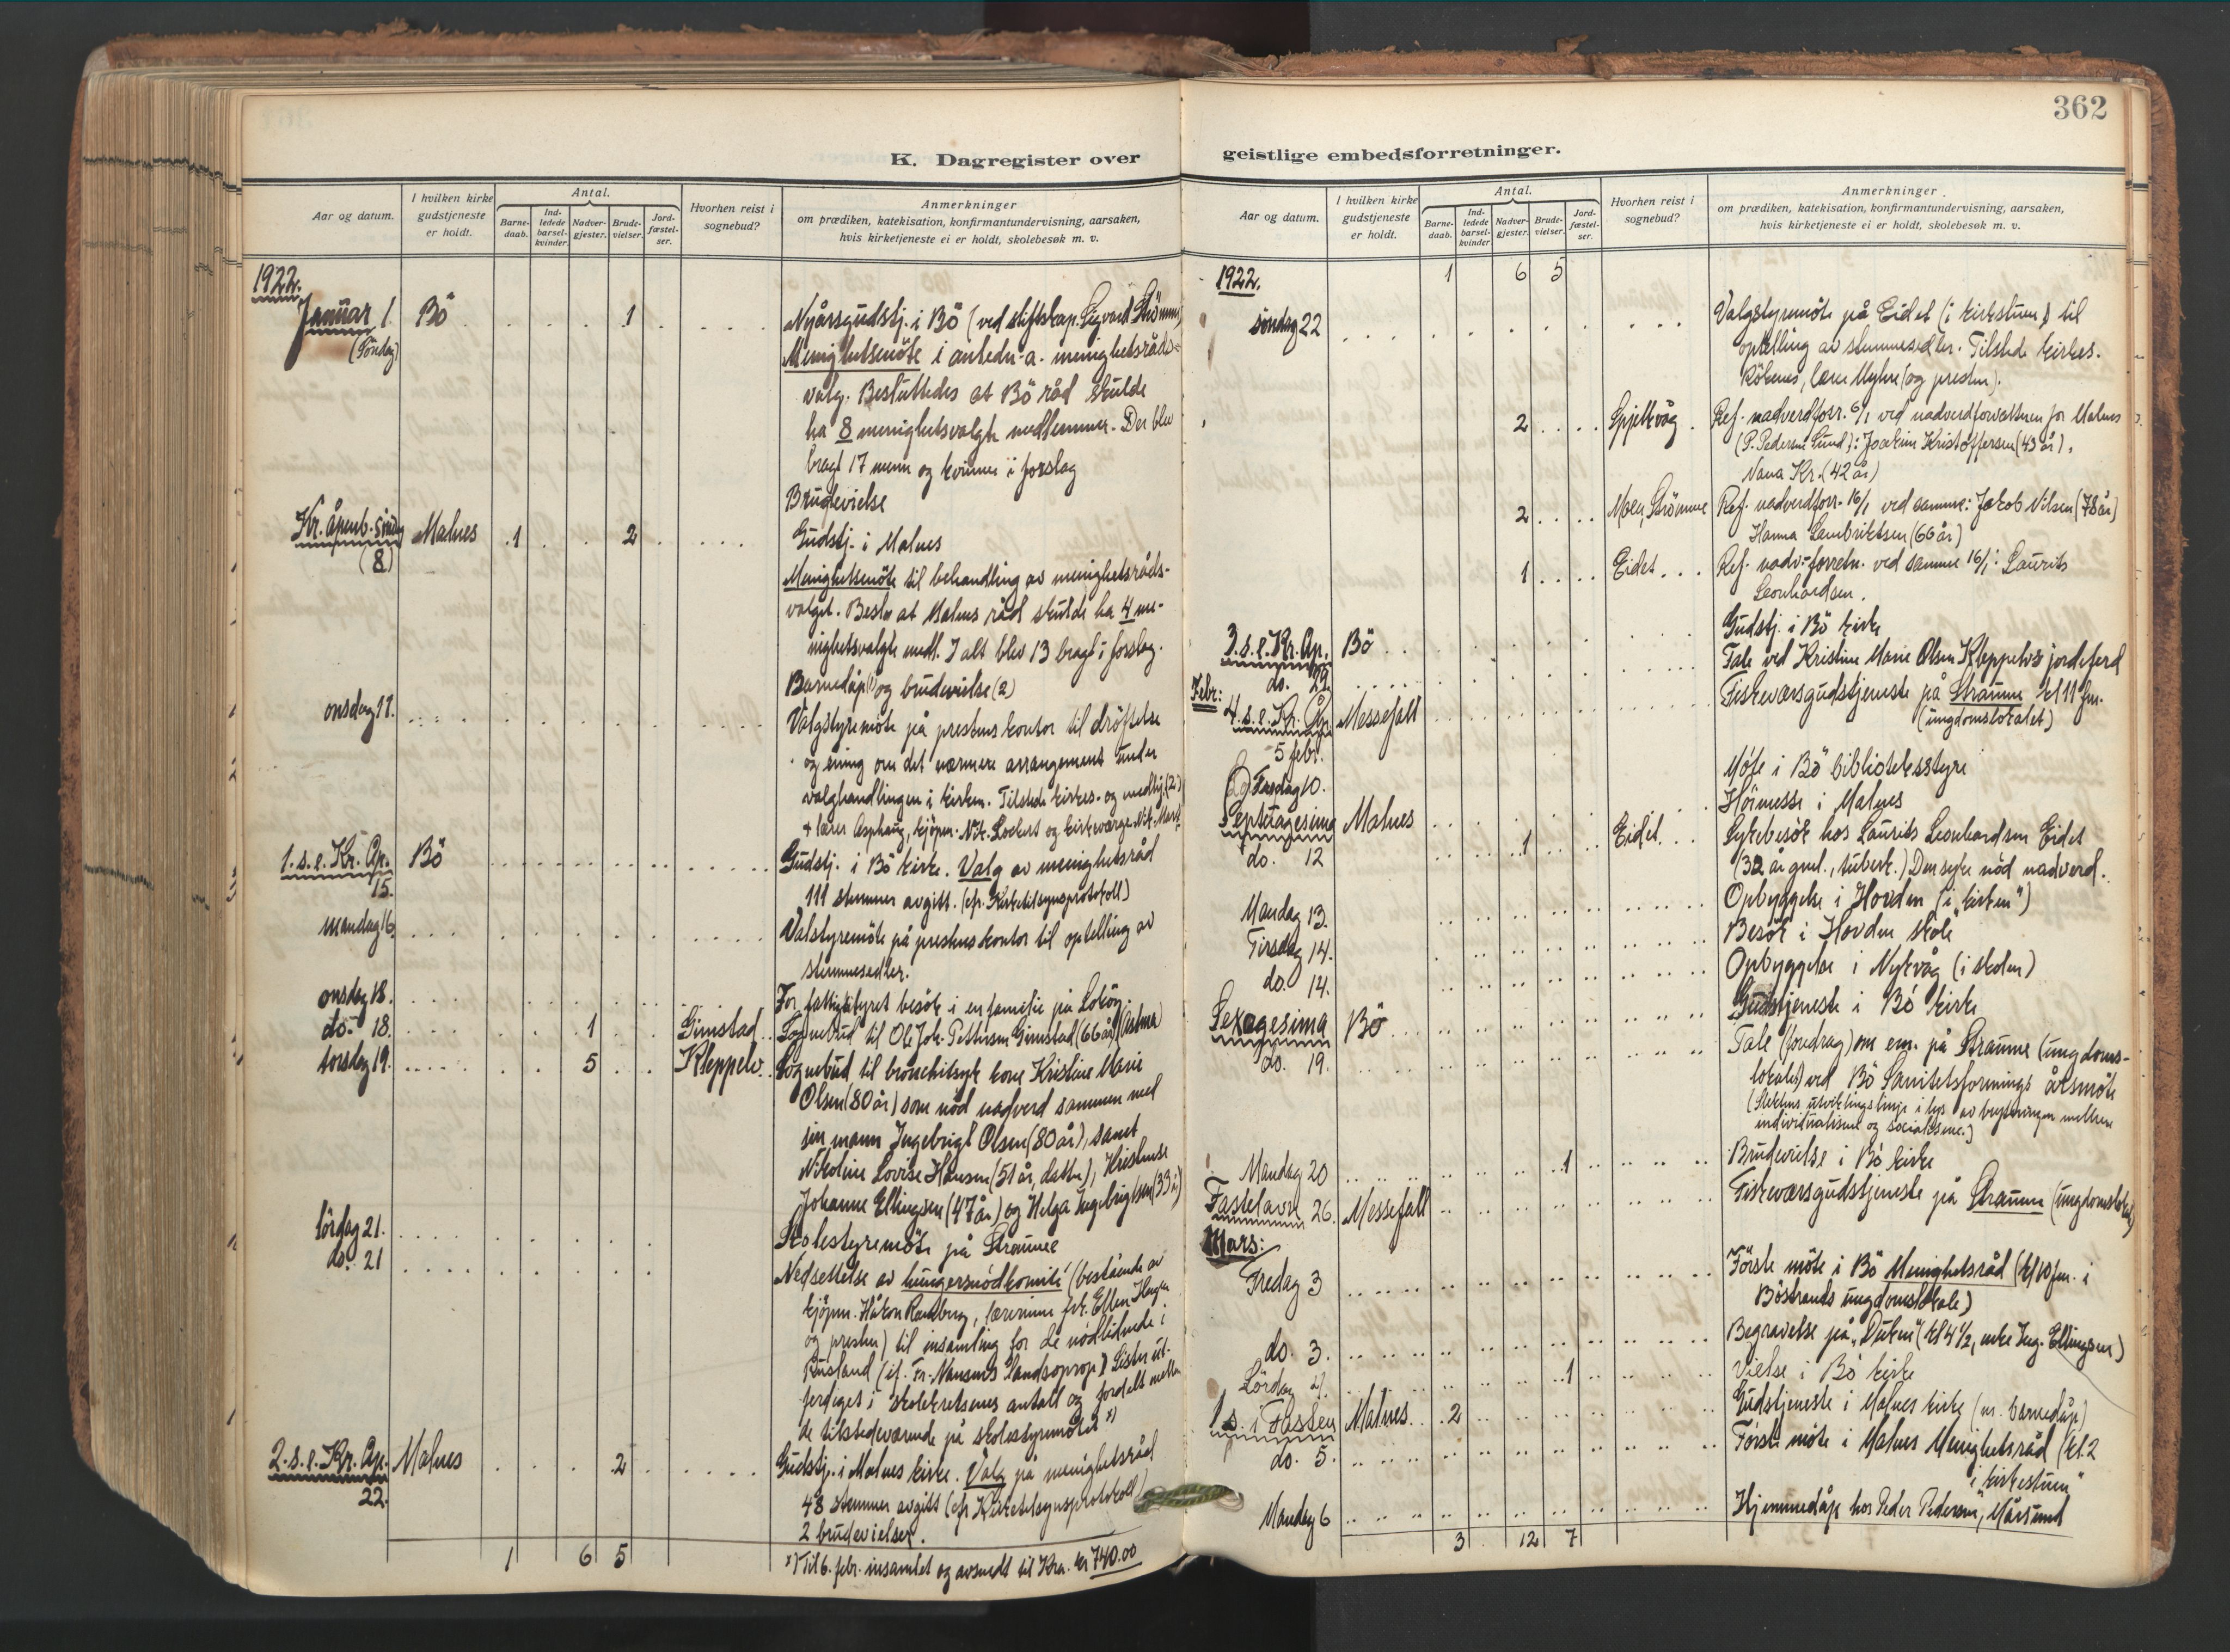 K. Dagregister over
Aar og datum.
I hvilken kirke gudstjeneste er holdt.
Antal.
Barne-daab.
Ind-ledede barsel-kvinder.
Nadver-gjester.
Brude-vielser.
Jord-fæstel-ser.
Hvorhen reist i sognebud?
Anmerkninger
om prædiken, katekisation, konfirmantundervisning, aarsaken,
hvis kirketjeneste ei er holdt, skolebesøk m. v.
1922.
Januar 1. Bö 1 Nyårsgudstj. i Bö (ved stiftskap. Sigvard
(Söndag) Menighetsmöte i anledn. a. menighetsråds-
valg. Besluttedes at Bö råd skulde
ha 8 menighetsvalgte medlemmer. Der blev
bragt 17 menn og kvinner i forslag
Brudevielse
Kr. åpenb. Malnes 1 2 Gudstj. i Malnes
(8) Menighetsmöte til behandling av menighetsråds-
valget. Beslr at Malnes råd skulde ha 4 me-
nighetsvalgte medl. I alt blev 13 bragt i forslag.
Barnedåp (1) og brudevielse (2)
onsdag 11. Valgstyremöte på prestens kontor til dröftelse
og ening om det nærmere arrangement under
valghandlingen i kirken. Tilstede kirkes. og medhj. (2)
+ lærer Asphaug, kjöpm. Nik. Lockert og kirkeverge Nik.
1. s. e. Kr. Ap. Bö Gudstj. i Bö kirke. Valg av menighetsråd
15. 111 stemmer avgitt. (cfr. Kirketilsynsprotokoll)
mandag 16. Valstyremöte på prestens kontor til optelling av
stemmesedler.
onsdag 18. For fattigstyret besök i en familie på
do. 18. 1 Gimstad Sognebud til Ole Joh. Pettersen Gimstad (66 år) (Astma)
torsdag 19. 5 Kleppelv. Sognebud til bronchitsyk kone Kristine Marie
Olsen (80 år) som nöd nadverd sammen med
sin mann Ingebrigt Olsen (80 år), samt
Nikoline Lovise Hansen (51 år, datter), Kristense
Johanne Ellingsen (47 år) og Helga Ingebrigtsen (33 å)
lördag 21. Skolestyremöte på Straume
do. 21 Nedsettelse av hungersnödkomité (bestående av
kjöpm. Håkon, lærerinne frk. Ellen
og presten) til insamling for de nödlidende i
Rusland (cf. Fr. Nansens landsoprop) Lister ut-
ferdiget i skolekretsenes antall og fordelt mellem
de tilstedeværende på skolestyremötet x)
2. s. e. Kr. Ap. Malnes 2 Gudstj. i Malnes kirke. Valg på menighetsråd
22. 48 stemmer avgitt (cfr Kirketilsynsprotokoll)
2 brudevielser.
1 6 5 x) Til 6. febr. insamlet og avsendt til Kra. kr 740.00
362
geistlige embedsforretninger.
Aar og datum.
I hvilken kirke gudstjeneste er holdt.
Antal.
Barne-daab.
Ind-ledede barsel-kvinder
Nadver-gjester.
Brude-vielser.
Jord-fæstel-ser.
Hvorhen reist i sognebud?
Anmerkninger
om prædiken, katekisation, konfirmantundervisning, aarsaken,
hvis kirketjeneste ei er holdt, skolebesøk m. v.
1922. 1 6 5
söndag 22 Valgstyremöte på Eidet (i kirkstuen) til
optelling av stemmesedler. Tilstede kirkes.
lærer Myhre (og presten).
2 Gjittvåg Ref. nadverdforr. 6/1 ved nadverdforvalteren for Malnes
(P. Pedersen Lund): Joakim Kristoffersen (43 år),
Nana Kr. (42 år)
2 Moen, Strömme Ref. nadverdforr. 16/1 ved samme: Jakob Nilsen (78 år)
Hanna Lambriktsen (66 år)
1 Eidet Ref. nadv.-forretn. ved samme 16/1: Laurits
Leonhardsen.
3. s. e. Kr. Ap. Bö Gudstj. i Bö kirke
do. 29. Tale ved Kristine Marie Olsen Kleppelvs jordeferd
Febr:
4. s. e. Kr. Åp. Messefall Fiskeværsgudstjeneste på Straume kl 11 fm.
5 febr. (ungdomslokalet)
Fredag 10. Möte i Bö biblioteksstyre
Septuagesima Malnes Höimesse i Malnes
do. 12 1 Eidet Sykebesök hos Laurits Leonhardsen Eidet
(32 år gml., tuberk.) Den syke nöd nadverd.
Mandag 13. Opbyggelse i Hovden (i "kirken")
Tirsdag 14. Besök i Hovden skole
do. 14. Opbyggelse i Nykvåg (i skolen)
Sexagesima Bö Gudstjeneste i Bö kirke
do. 19. Tale (foredrag) om em. på Straume (ungdoms-
lokalet) ved Bö Sanitetsforenings årsmöte
(Slektens utviklingslinje i lys av brytningen mellem
individualisme og socialisme.)
Mandag 20 1 Brudevielse i Bö kirke
Fastelavn 26. Messefall Fiskeværsgudstjeneste på Straume
Mars:
Fredag 3 Förste möte i Bö Menighetsråd (kl 10 fm. i
Böstrands ungdomslokale)
do. 3. Begravelse på (kl 4½, enke Ing. Ellingsen)
Lördag 4. 1 Vielse i Bö kirke
1 s. i Fasten Malnes 2 Gudstjeneste i Malnes kirke (m. barnedåp)
do. 5. Förste möte i Malnes Menighetsråd (kl. 2
i "kirkestuen"
Mandag 6 Hjemmedåp hos Peder Pedersen, Mårsund
3 12 7